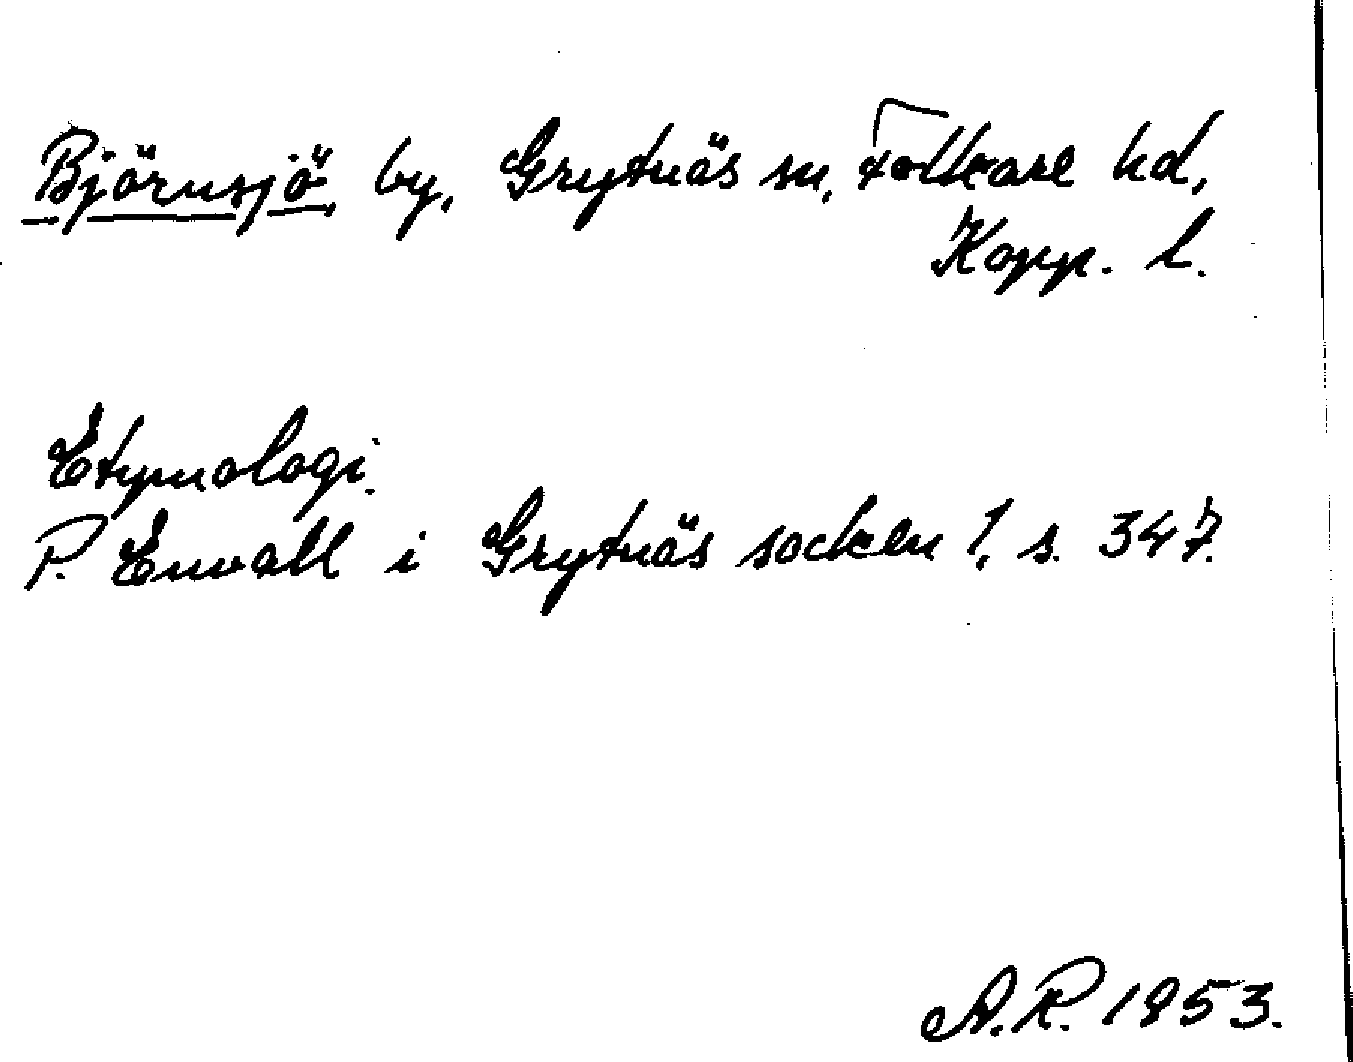 Björnsjö, by, Grytnäs sn, Folkare hd,
Kopp. l.
Etymologi.
P. Envall i Grytnäs socken 1, s. 347.
A.R. 1953.